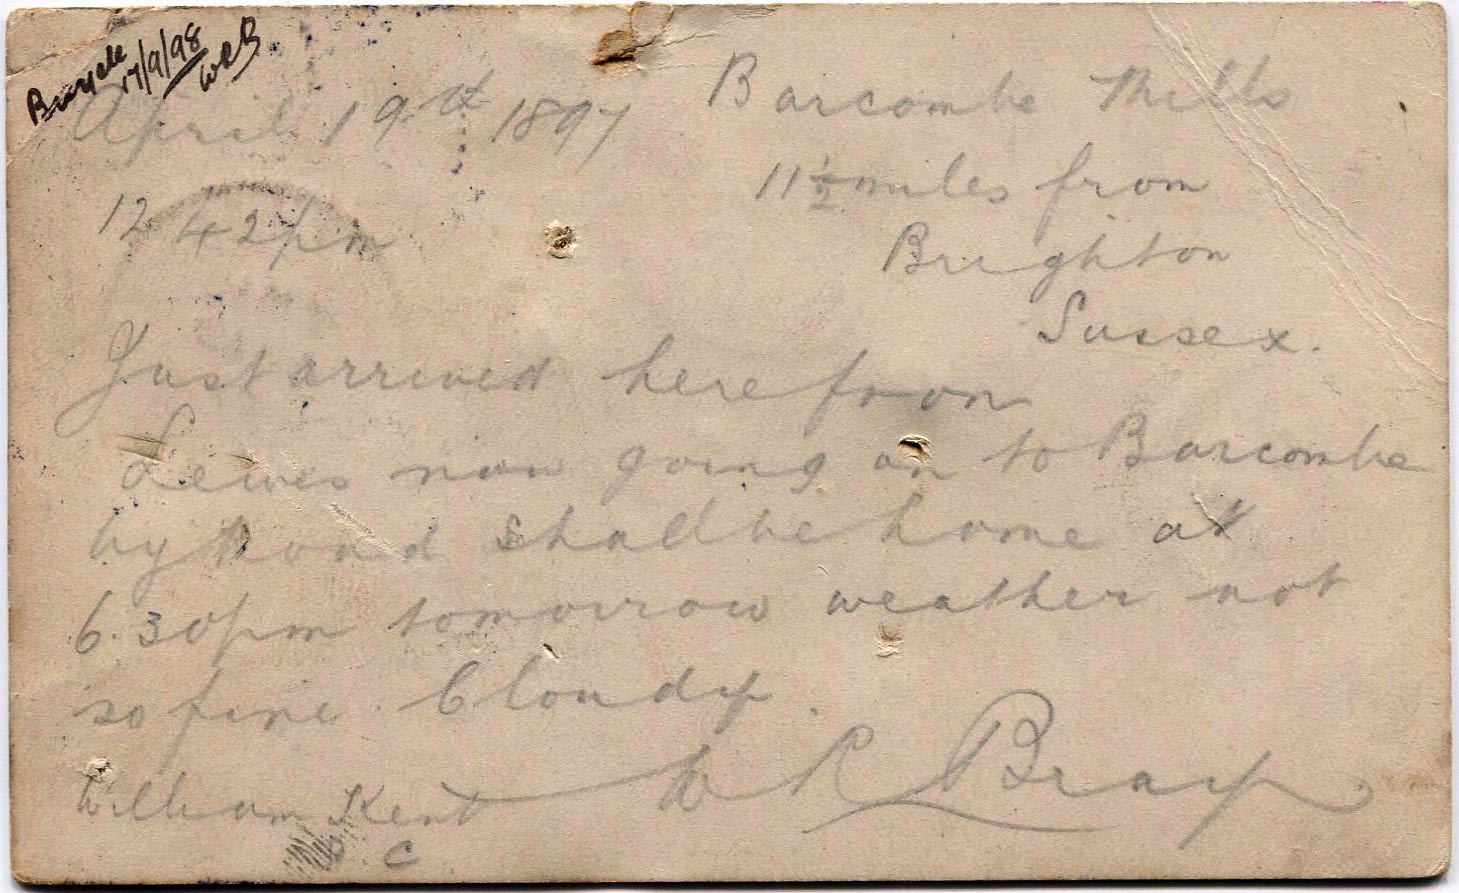 Bicycle
17/9/98
WRB
April 19th 1897
12 42pm
Barcombe Mills
11½ miles from
Brighton
Sussex.
Just arrived here from
Lewes now going on to Barcombe
by road shall be home at
6.30pm tomorrow weather not
so fine. Cloudy.
W R Bray
William Kent
C